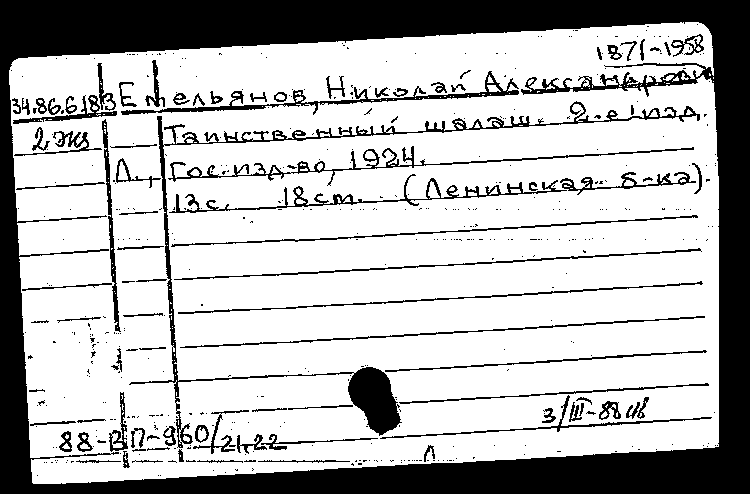 1871-1958
34.86.6.183 Емельянов, Николай Александрович
2 экз Таинственный шалаш. 2-е изд.
Л., Гос. изд-во, 1924.
13с. 18см. (Ленинская б-ка).
3/III-88
88-В П-960/21,22